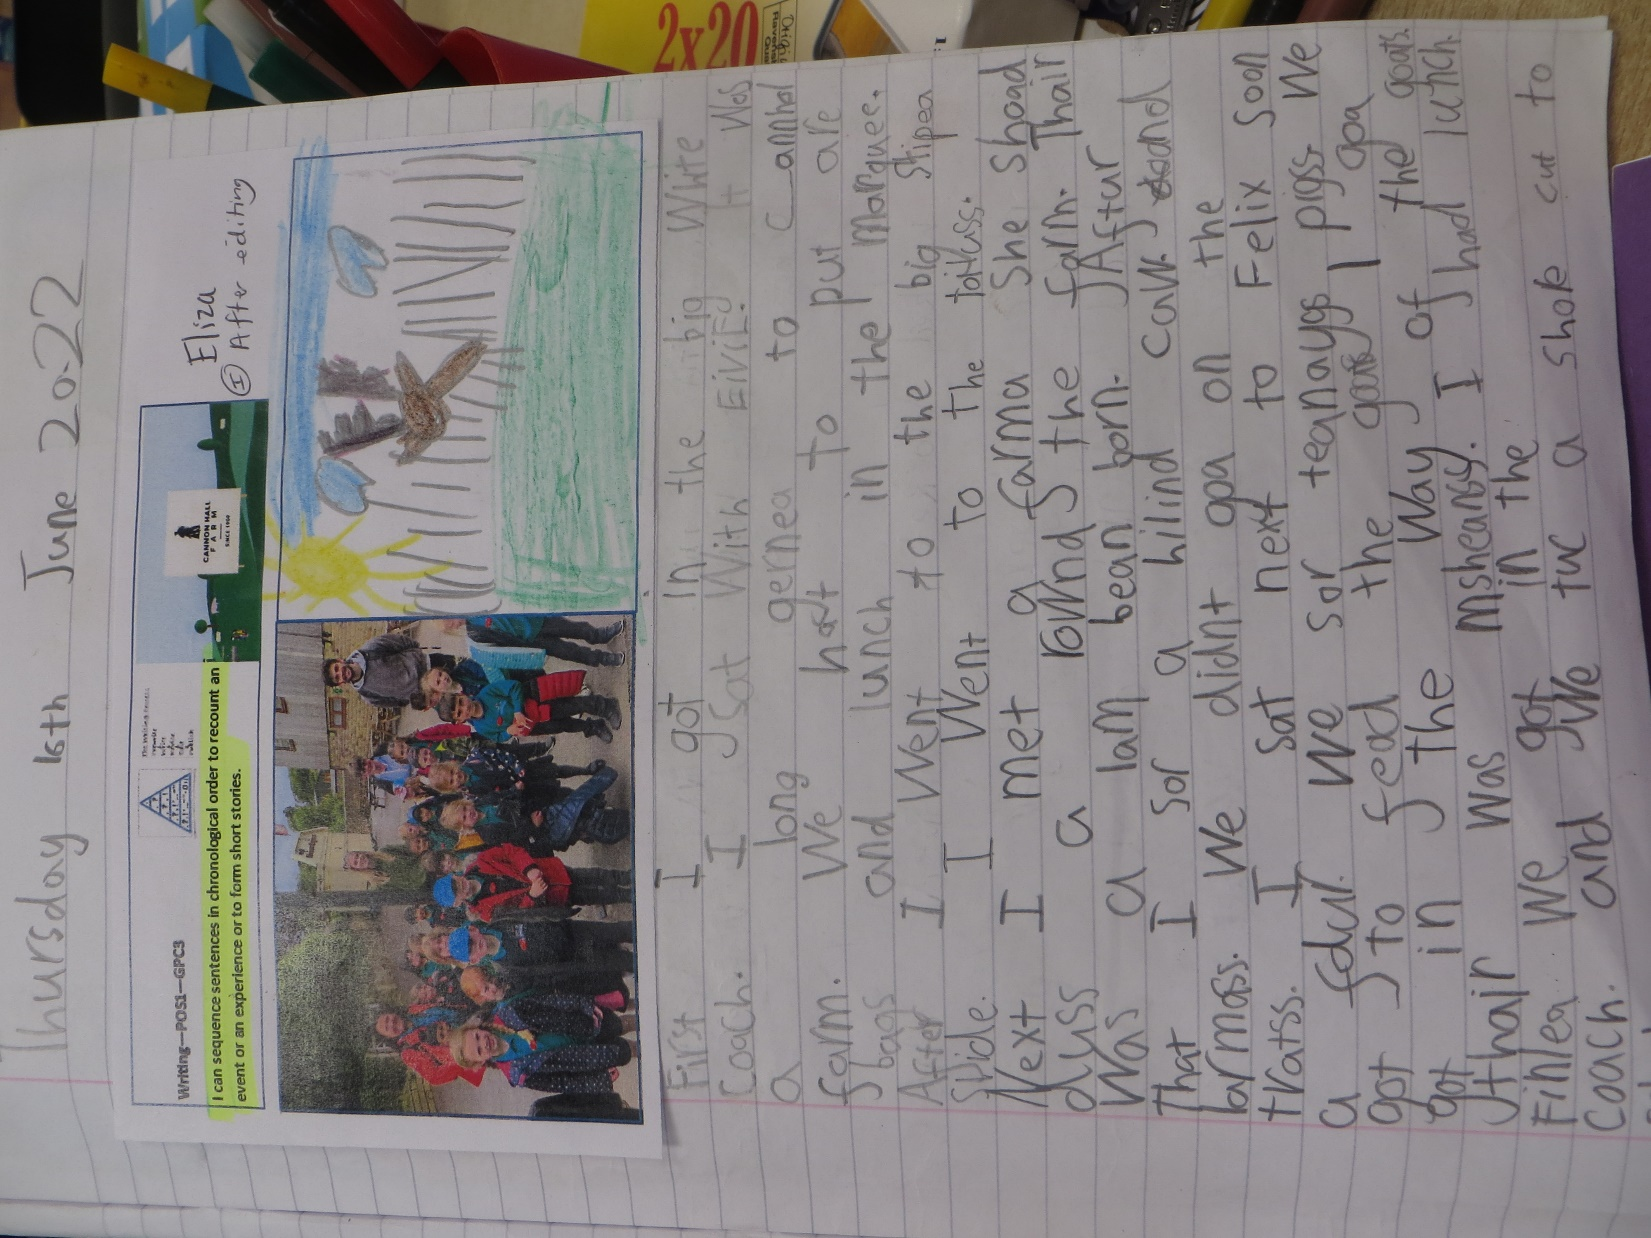 Thursday 16th June 2022
Writing—POS1—GPC3
I can sequence sentences in chronological order to recount an
event or an experience or to form short stories.
CANNON HALL
FARM
SINCE 1950
Eliza
I After editing
2x20
First I got in the big White
coach. I sat With EiviE. It Was
a long gernea to Cannhol
farm. We hat to put are
bags and lunch in the marquee.
After I Went to the big slipea
Slide. I Went to the toituss.
Next I met a farma She Shoad
a uss a rownd the farm. Thair
Was a lam bean born. Aftur
That I sor a hilind cuw. and
barmas. We didnt goa on the
tratss. I sat next to Felix Soon
a fdur. We sor teanays pigss We
got to feed the goats I goa
got in the Way of the goats.
thair Was misheansy. I had lutch.
Finlea We got in the
coach. and We tuc a shote cut to